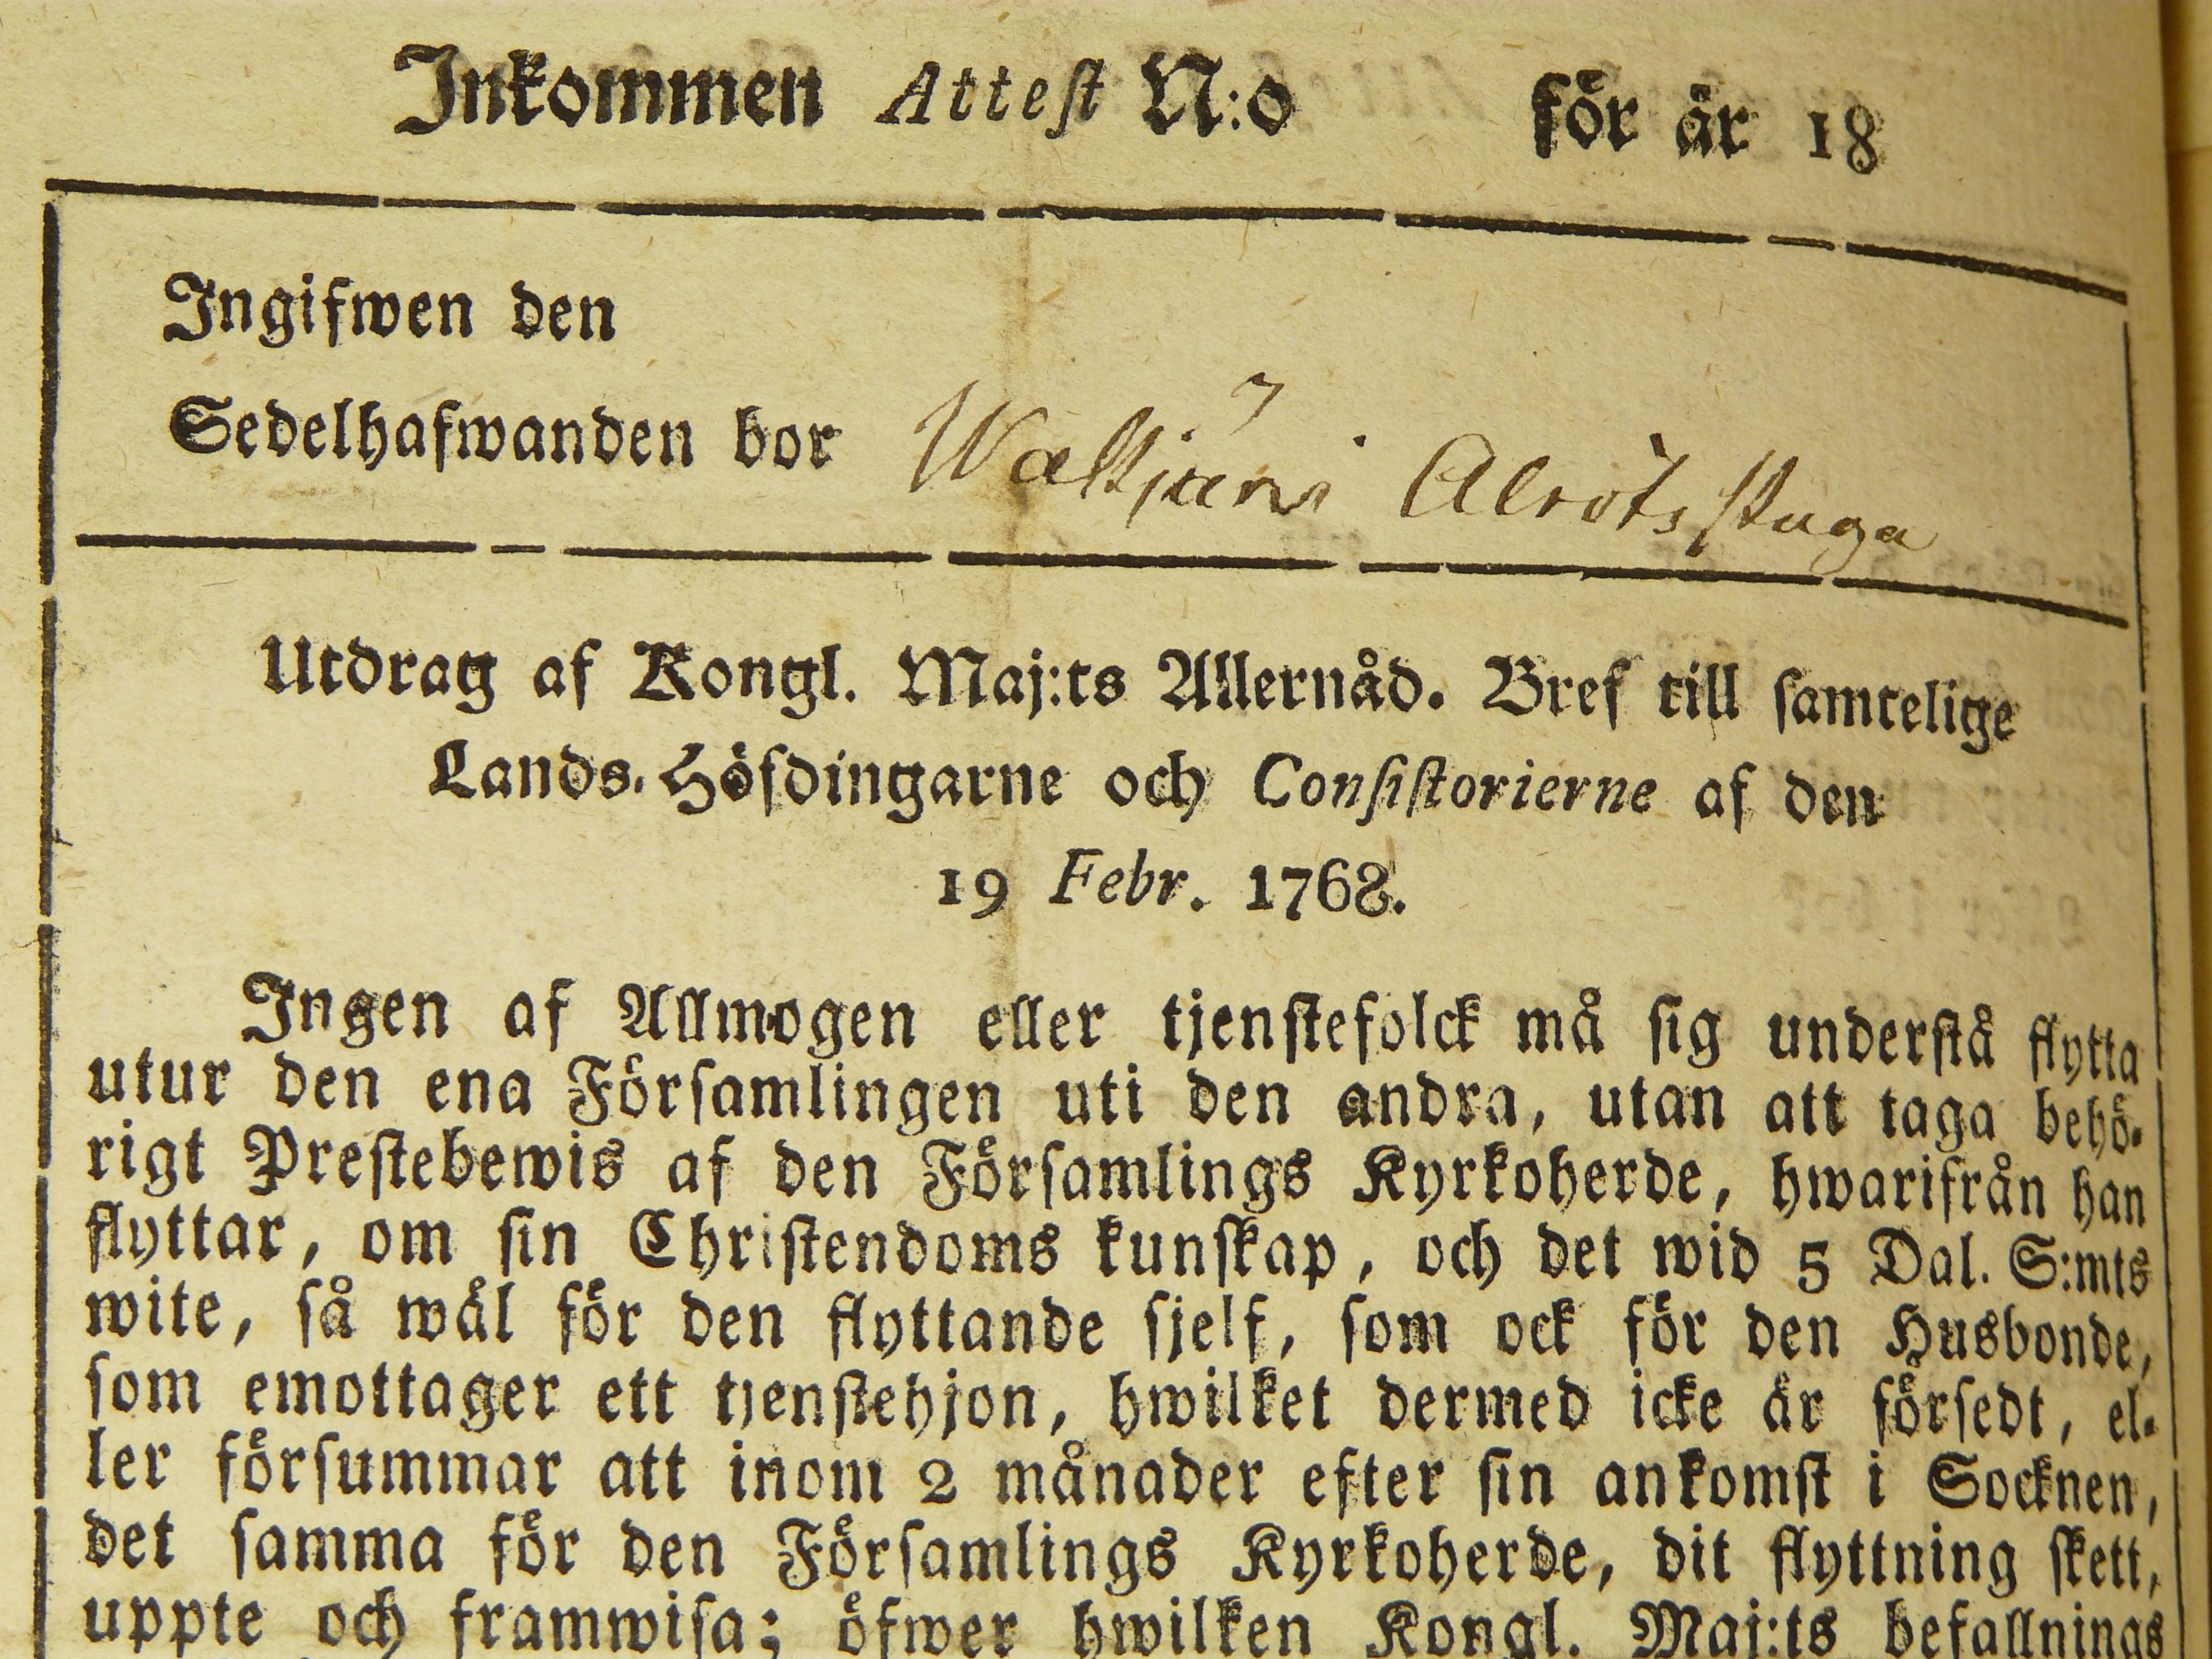 Inkommen Attest N:o för år 18
Ingifwen den
Sedelhafwanden bor Walkjärvi Alrotsstuga
Utdrag af Kongl. Maj:ts Allernåd. Bref till samtelige
Lands-Höfdingarne och Consistorierne af den
19 Febr. 1768.
Ingen af Allmogen eller tjenstefolck må sig understå flytta
utur den ena Församlingen uti den andra, utan att taga behö-
rigt Prestebewis af den Församlings Kyrkoherde, hwarifrån han
flyttar, om sin Christendoms kunskap, och det wid 5 Dal. S:mts
wite, så wäl för den flyttande sjelf, som ock för den Husbonde,
som emottager ett tjenstehjon, hwilket dermed icke är försedt, el-
ler försummar att inom 2 månader efter sin ankomst i Socknen,
det samma för den Församlings Kyrkoherde, dit flyttning skett,
uppte och framwisa; öfwer hwilken Kongl. Maj:ts befallnings